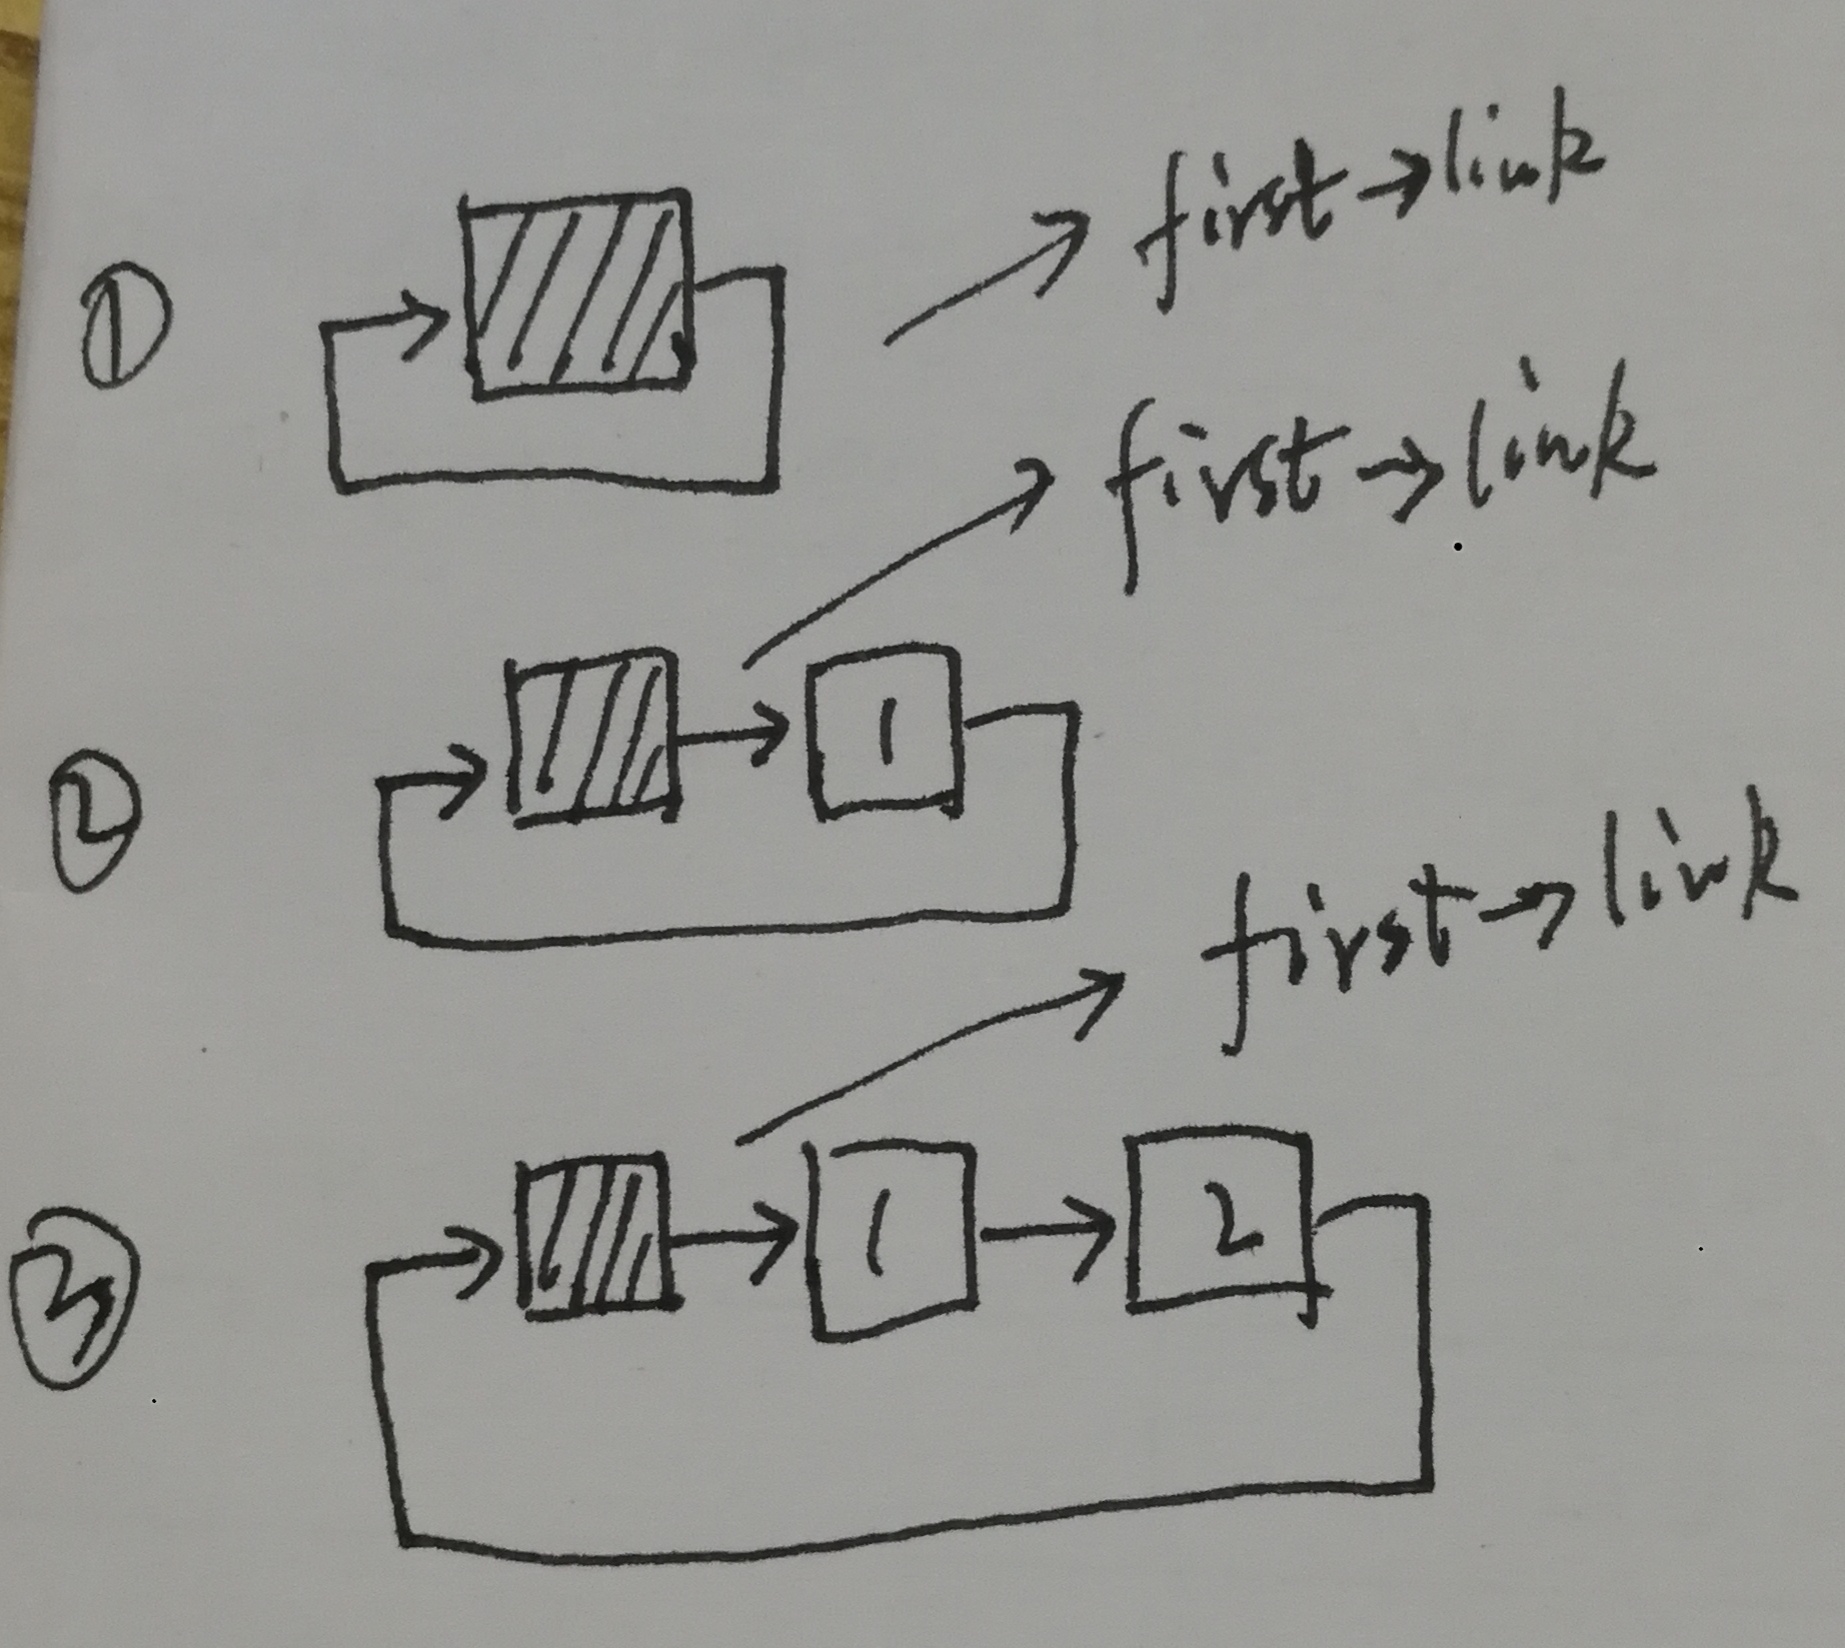 ① first→link
first→link
② 1
first→link
③ 1 2